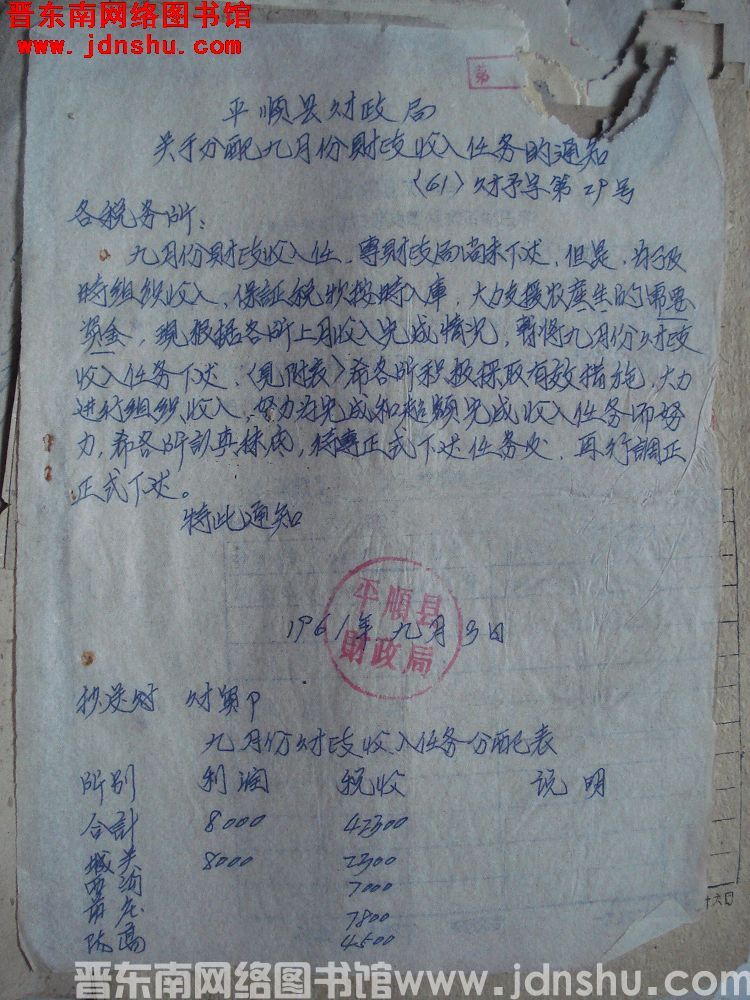 晋东南网络图书馆
www.jdnshu.com
第
平順县财政局
关于分配九月份財政收入任务的通知
〈61〉财予字第29号
各税务所：
九月份財政收入任，專財政局尚未下达，但是，为了及
時组织收入，保証税款按時入庫，大力支援农产生的需要
资金，现根据各所上月收入完成情况，暫将九月份财政
收入任务下达，〈见附表〉希各所积极採取有效措施，大力
进行组织收入，努力为完成和超額完成收入任务而努
力，希各所认真，待專正式下达任务后，再行調正
正式下达。
特此通知
平順县
財政局
1961年九月3日
抄送 财貿
九月份财政收入任务分配表
所别 利润 税收 说明
合計 8000 42300
城关 8000 2300
7000
7800
4500
晋东南网络图书馆 www.jdnshu.com